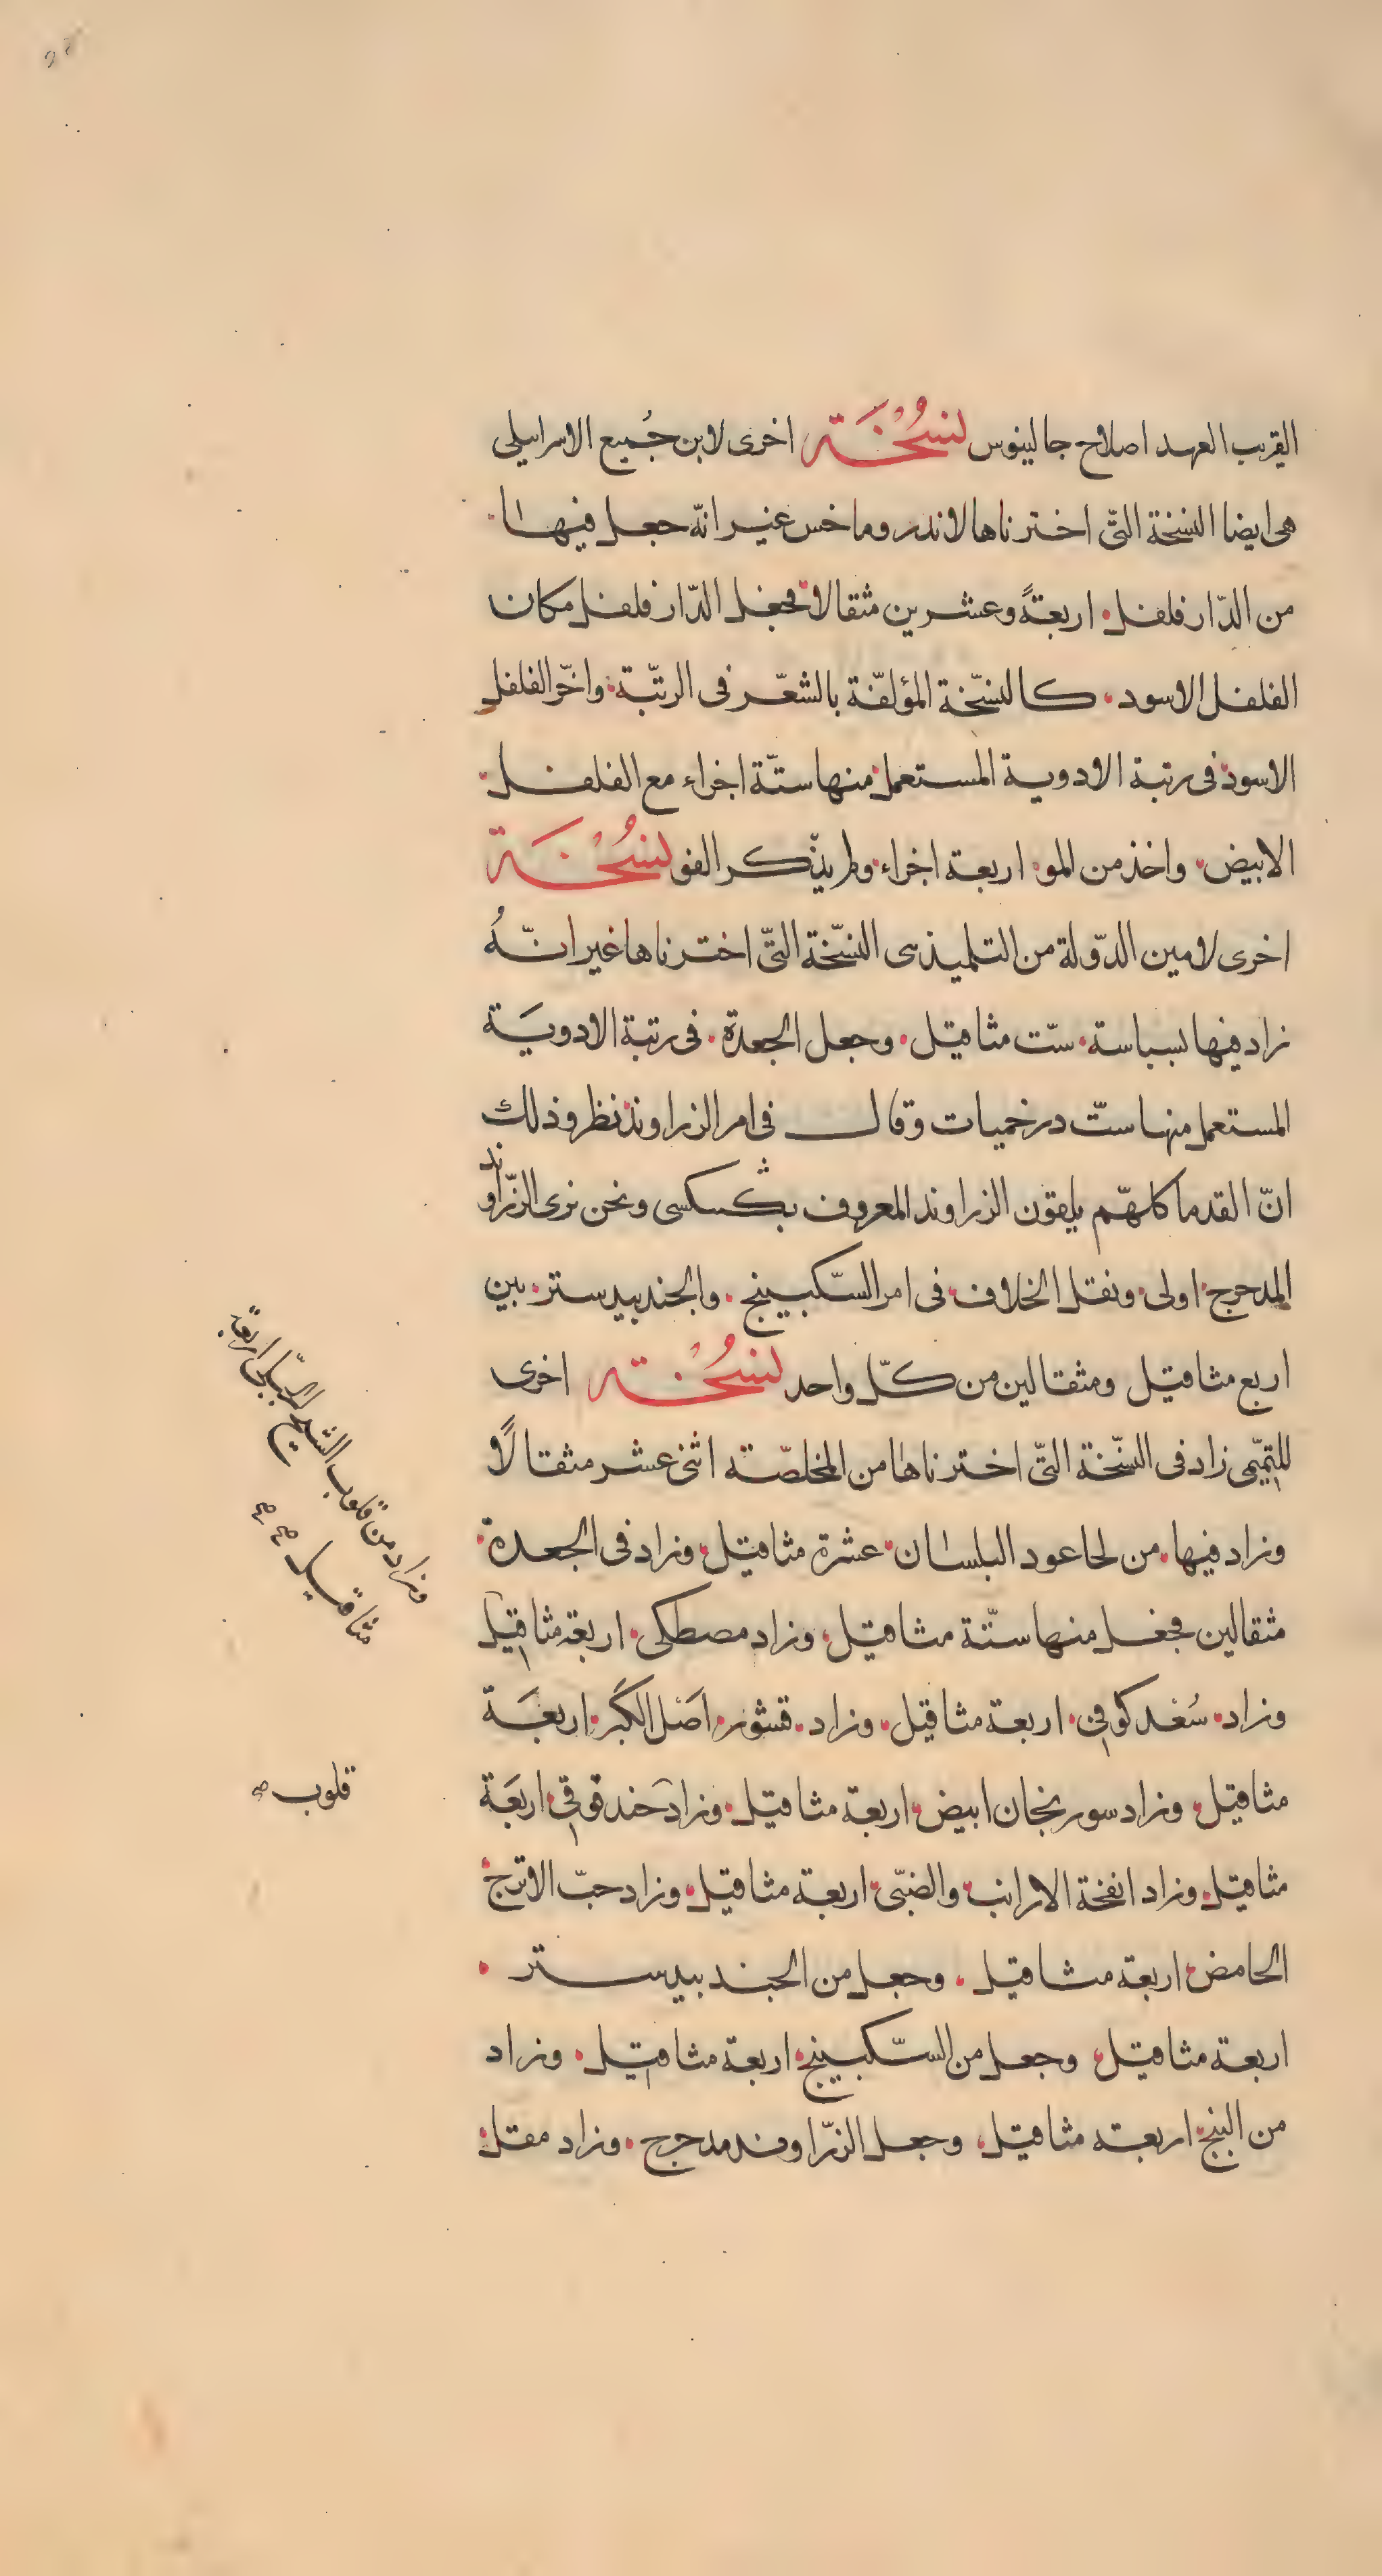 القريب العهد اصلاح جالينوس نسخة اخرى لابن جُميع الاسرايلى
هى ايضا النسخة التّى اخترناها لاندروماخس غير انّه جعل فيها
من الدّار فلفل اربعةً وعشرين مثقالا فجعل الدّار فلفل مكان
الفلفل الاسود كالنسّخة المؤلفّة بالشعّر فى الرتبّة واخّر الفلفل
الاسود فى رتبة الادوية المستعمل منها ستّة اجزاء مع الفلفل
الابيض واخذ من المو اربعة اجزاء ولم يذّكر الفو نسُخَة
اخرى لامين الدّولة من التلميذ هى النسّخة التّى اخترناها غير انّهُ
زاد فيها بسباسة ستّ مثاقيل وجعل الجعدة فى رتبة الادويَة
المستعمل منها ستّ درخميات وقال فى امر الزراوند نظر وذلك
انّ القدما كلهّم يلقون الزراوند المعروف بڪسكسى ونحن نرى الزّراوند
المدحرج اولى ونقل الخلاف فى امر السّكبينج والجندبيدستر بين
اربع مثاقيل ومثقالين من كلّ واحد نسُخة اخرى
للتميّمى زاد فى النسّخة التّى اخترناها من المخلصّة اثنى عشر مثقالًا
وزاد فيها من لحا عود البلسان عشرة مثاقيل وزاد فى الجعدة
مثقالين فجعل منها ستّة مثاقيل وزاد مصطكى اربعة مثاقيل
وزاد سُعد كوفى اربعة مثاقيل وزاد قشور اصَل الكَبر اربعَة
مثاقيل وزاد سورنجان ابيض اربعة مثاقيل وزاد حندقوقى اربعَة
مثاقيل وزاد انفخة الارانب والضبّى اربعة مثاقيل وزاد حبّ الاترج
الحامض اربعة مثاقيل وجعل من الجندبيدستر
اربعة مثاقيل وجعل من السّكبينج اربعة مثاقيل وزاد
من البنج اربعة مثاقيل وجعل الزّراوند مدحرج وزاد مقل
وزاد من قلوب الشيح الجبلّى اربعة
مثاقيل صح صح
قلوب